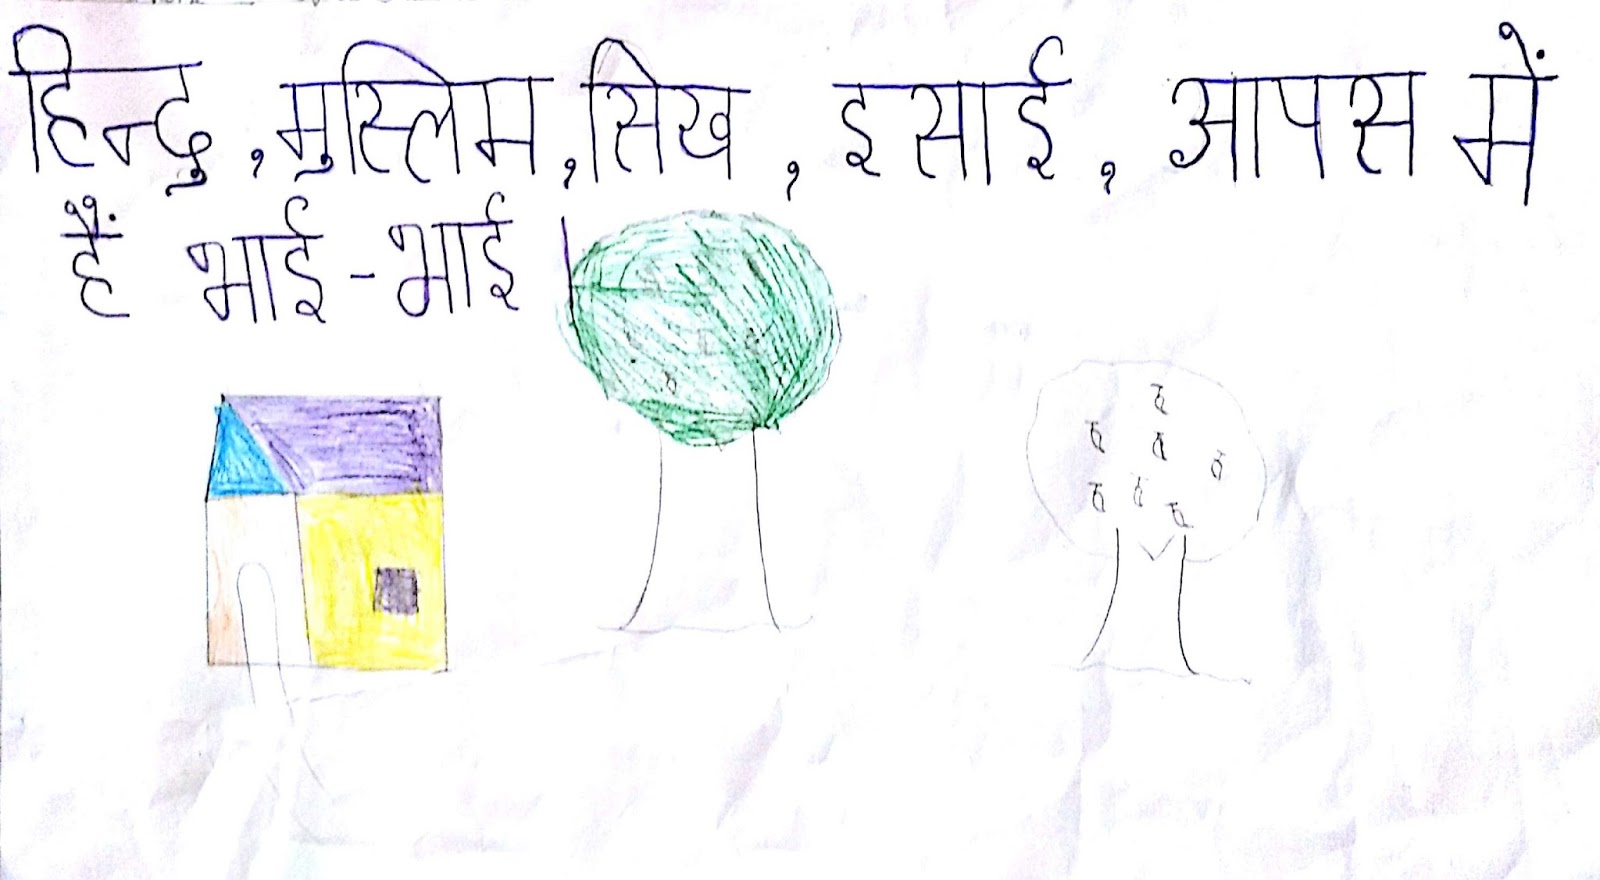 हिन्दु, मुस्लिम, सिख, इसाई, आपस में
हैं भाई-भाई।